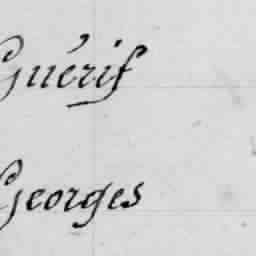 Guérif
Georges